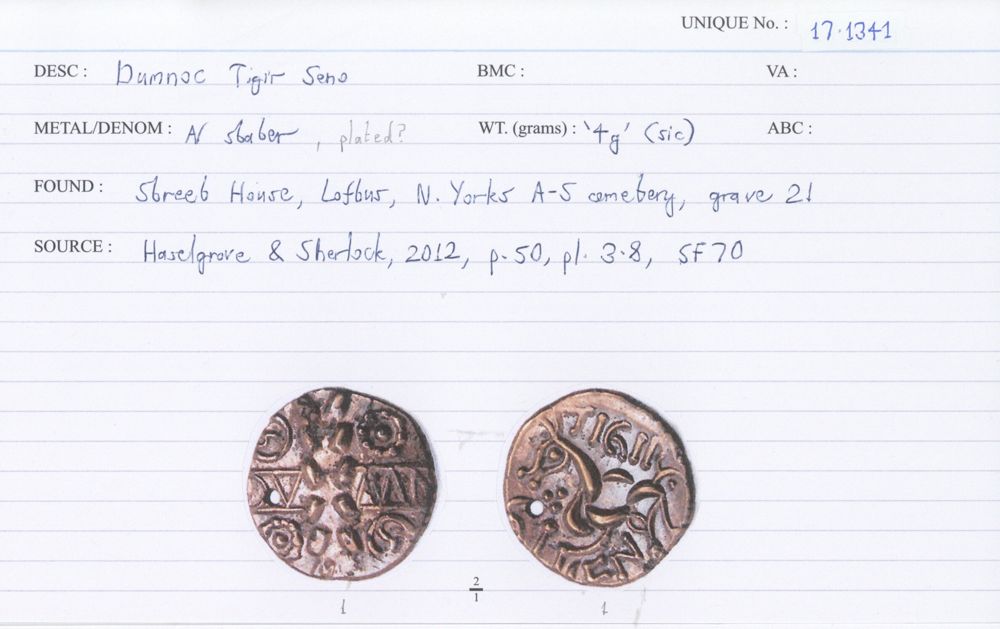 UNIQUE No. : 17.1341
DESC : Dumnoc Tigir Seno BMC : VA :
METAL/DENOM : N stater, plated? WT. (grams) : '4g' (sic) ABC :
FOUND : Street House, Loftus, N. Yorks A-S cemetery, grave 21
SOURCE : Haselgrove & Sherlock, 2012, p.50, pl. 3.8, SF70
TIGII
EN
2
1
1 1